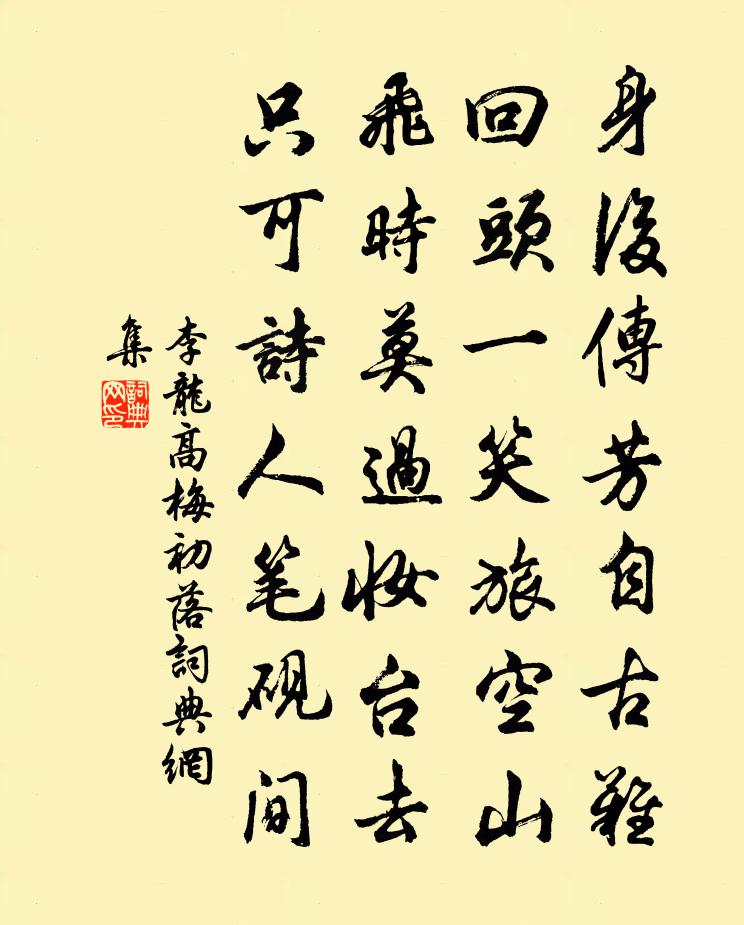 身後傳芳自古難
回頭一笑旅空山
飛時莫過妝台去
只可詩人笔硯间
李龍高梅初落詞典網
集
詞典
网印